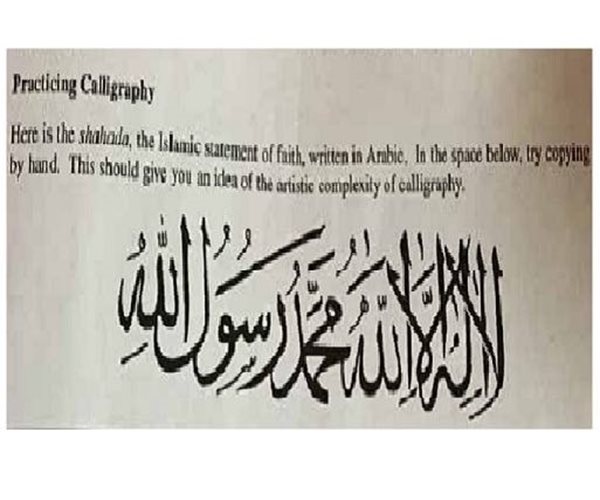 Practicing Calligraphy
Here is the shahada, the Islamic statement of faith, written in Arabic. In the space below, try copying
by hand. This should give you an idea of the artistic complexity of calligraphy.
لا إله إلا الله محمد رسول الله